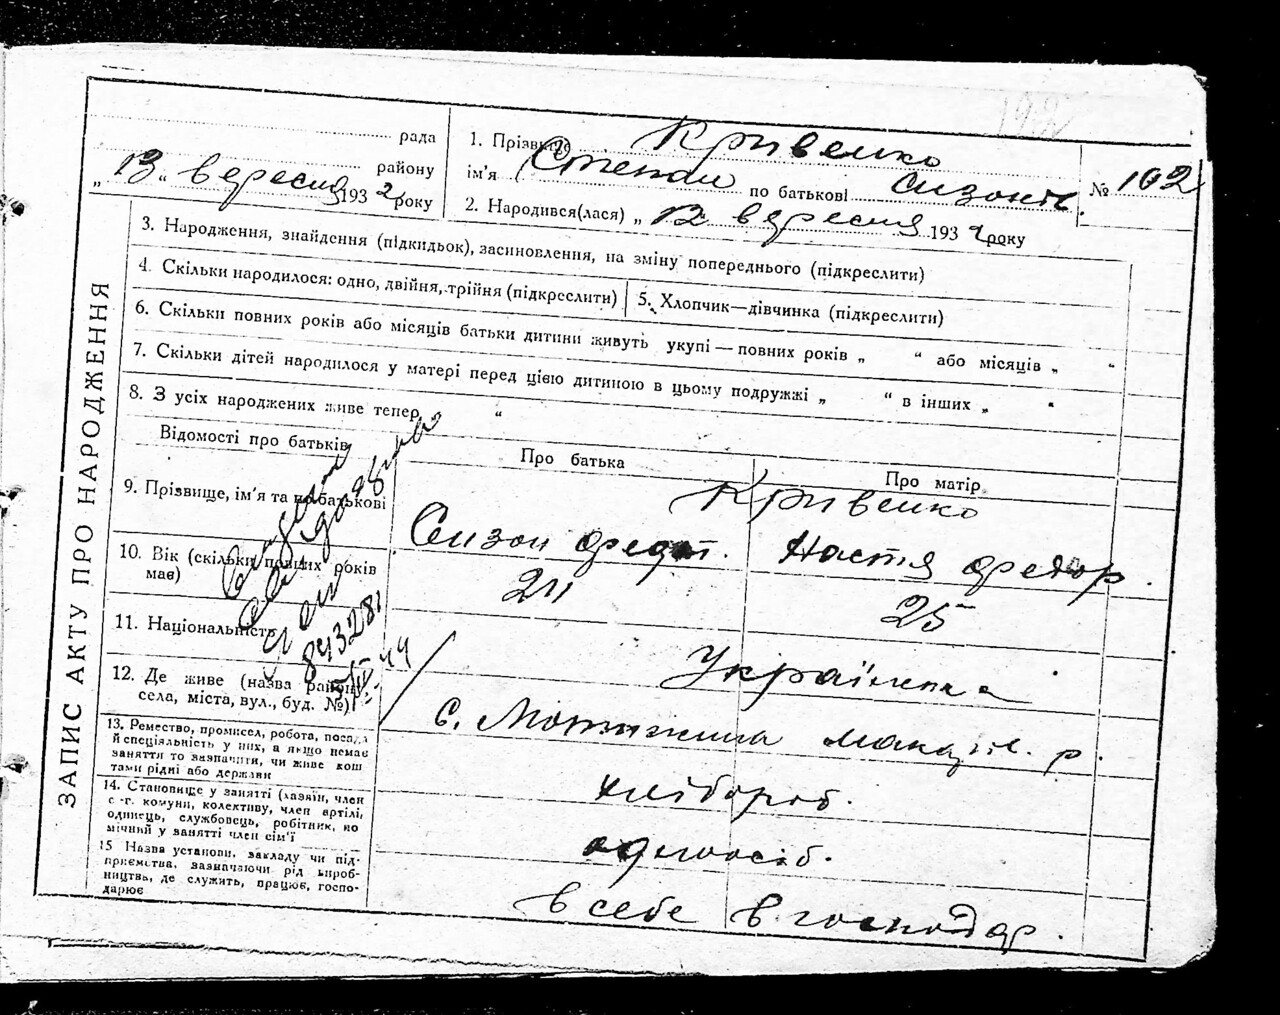 192
рада
району
„13“ вересня 1932 року
1. Прізвище Кривенко
ім'я Степан по батькові Сизонтв.
№ 102
2. Народився(лася) „12 вересня 1932 року
ЗАПИС АКТУ ПРО НАРОДЖЕННЯ
3. Народження, знайдення (підкидьок), засиновлення, на зміну попереднього (підкреслити)
4. Скільки народилося: одно, двійня, трійня (підкреслити)
5. Хлопчик—дівчинка (підкреслити)
6. Скільки повних років або місяців батьки дитини живуть укупі — повних років „ “ або місяців „ “
7. Скільки дітей народилося у матері перед цією дитиною в цьому подружжі „ “ в інших „ “
8. З усіх народжених живе тепер “
Відомості про батьків
Про батька
Про матір
9. Прізвище, ім'я та по батькові
Кривенко
Сизон Федот.
Настя Федор.
10. Вік (скільки повних років має)
24
25
11. Національність
Українка
12. Де живе (назва район, села, міста, вул., буд. №)
с. Мотижина Макар. р.
13. Ремество, промисел, робота, посада
й спеціальність у них, а якщо немає
заняття то зазначити, чи живе кош
тами рідні або держави
хлібороб.
14. Становище у занятті (хазяїн, член
с.-г. комуни, колективу, член артілі,
одинець, службовець, робітник, по
мічний у занятті член сім'ї
одноосіб.
15 Назва установи, закладу чи під-
приємства, зазначаючи рід вироб-
ництва, де служить, працює, госпо-
дарює
в себе в господар.
843281